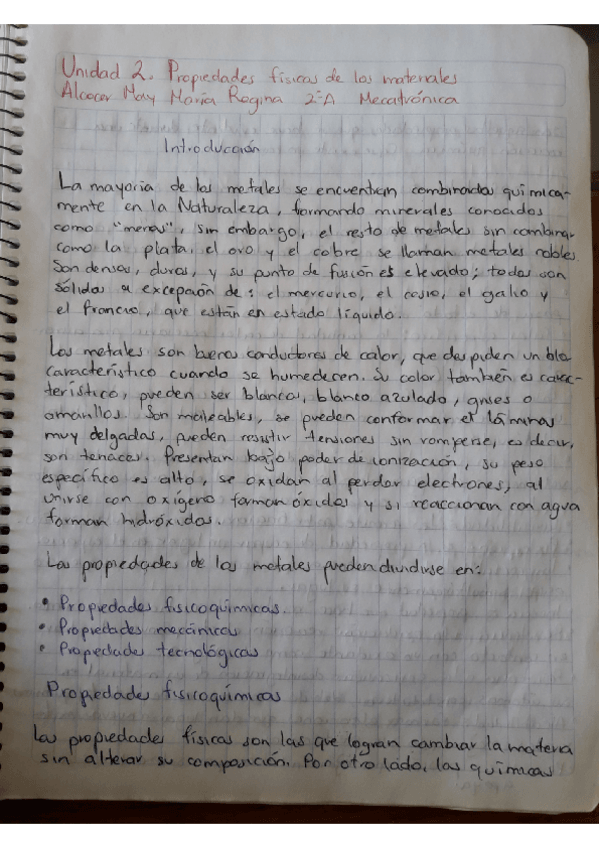 Unidad 2. Propiedades físicas de los materiales
Alcocer May María Regina 2°A Mecatrónica
Introducción
La mayoría de los metales se encuentran combinados química-
mente en la Naturaleza, formando minerales conocidos
como "menas", sin embargo, el resto de metales sin combinar
como la plata, el oro y el cobre se llaman metales nobles.
Son densos, duros, y su punto de fusión es elevado; todos son
sólidos a excepción de: el mercurio, el cesio, el galio y
el francio, que están en estado líquido.
Los metales son buenos conductores de calor, que despiden un olor
característico cuando se humedecen. Su color también es carac-
terístico, pueden ser blancos, blanco azulado, grises o
amarillos. Son maleables, se pueden conformar et láminas
muy delgadas, pueden resistir tensiones sin romperse, es decir,
son tenaces. Presentan bajo poder de ionización, su peso
específico es alto, se oxidan al perder electrones, al
unirse con oxígeno forman óxidos y si reaccionan con agua
forman hidróxidos.
Las propiedades de los metales pueden dividirse en:
• Propiedades fisicoquímicas.
• Propiedades mecánicas
• Propiedades tecnológicas
Propiedades fisicoquímicas
Las propiedades físicas son las que logran cambiar la materia
sin alterar su composición. Por otro lado, las químicas